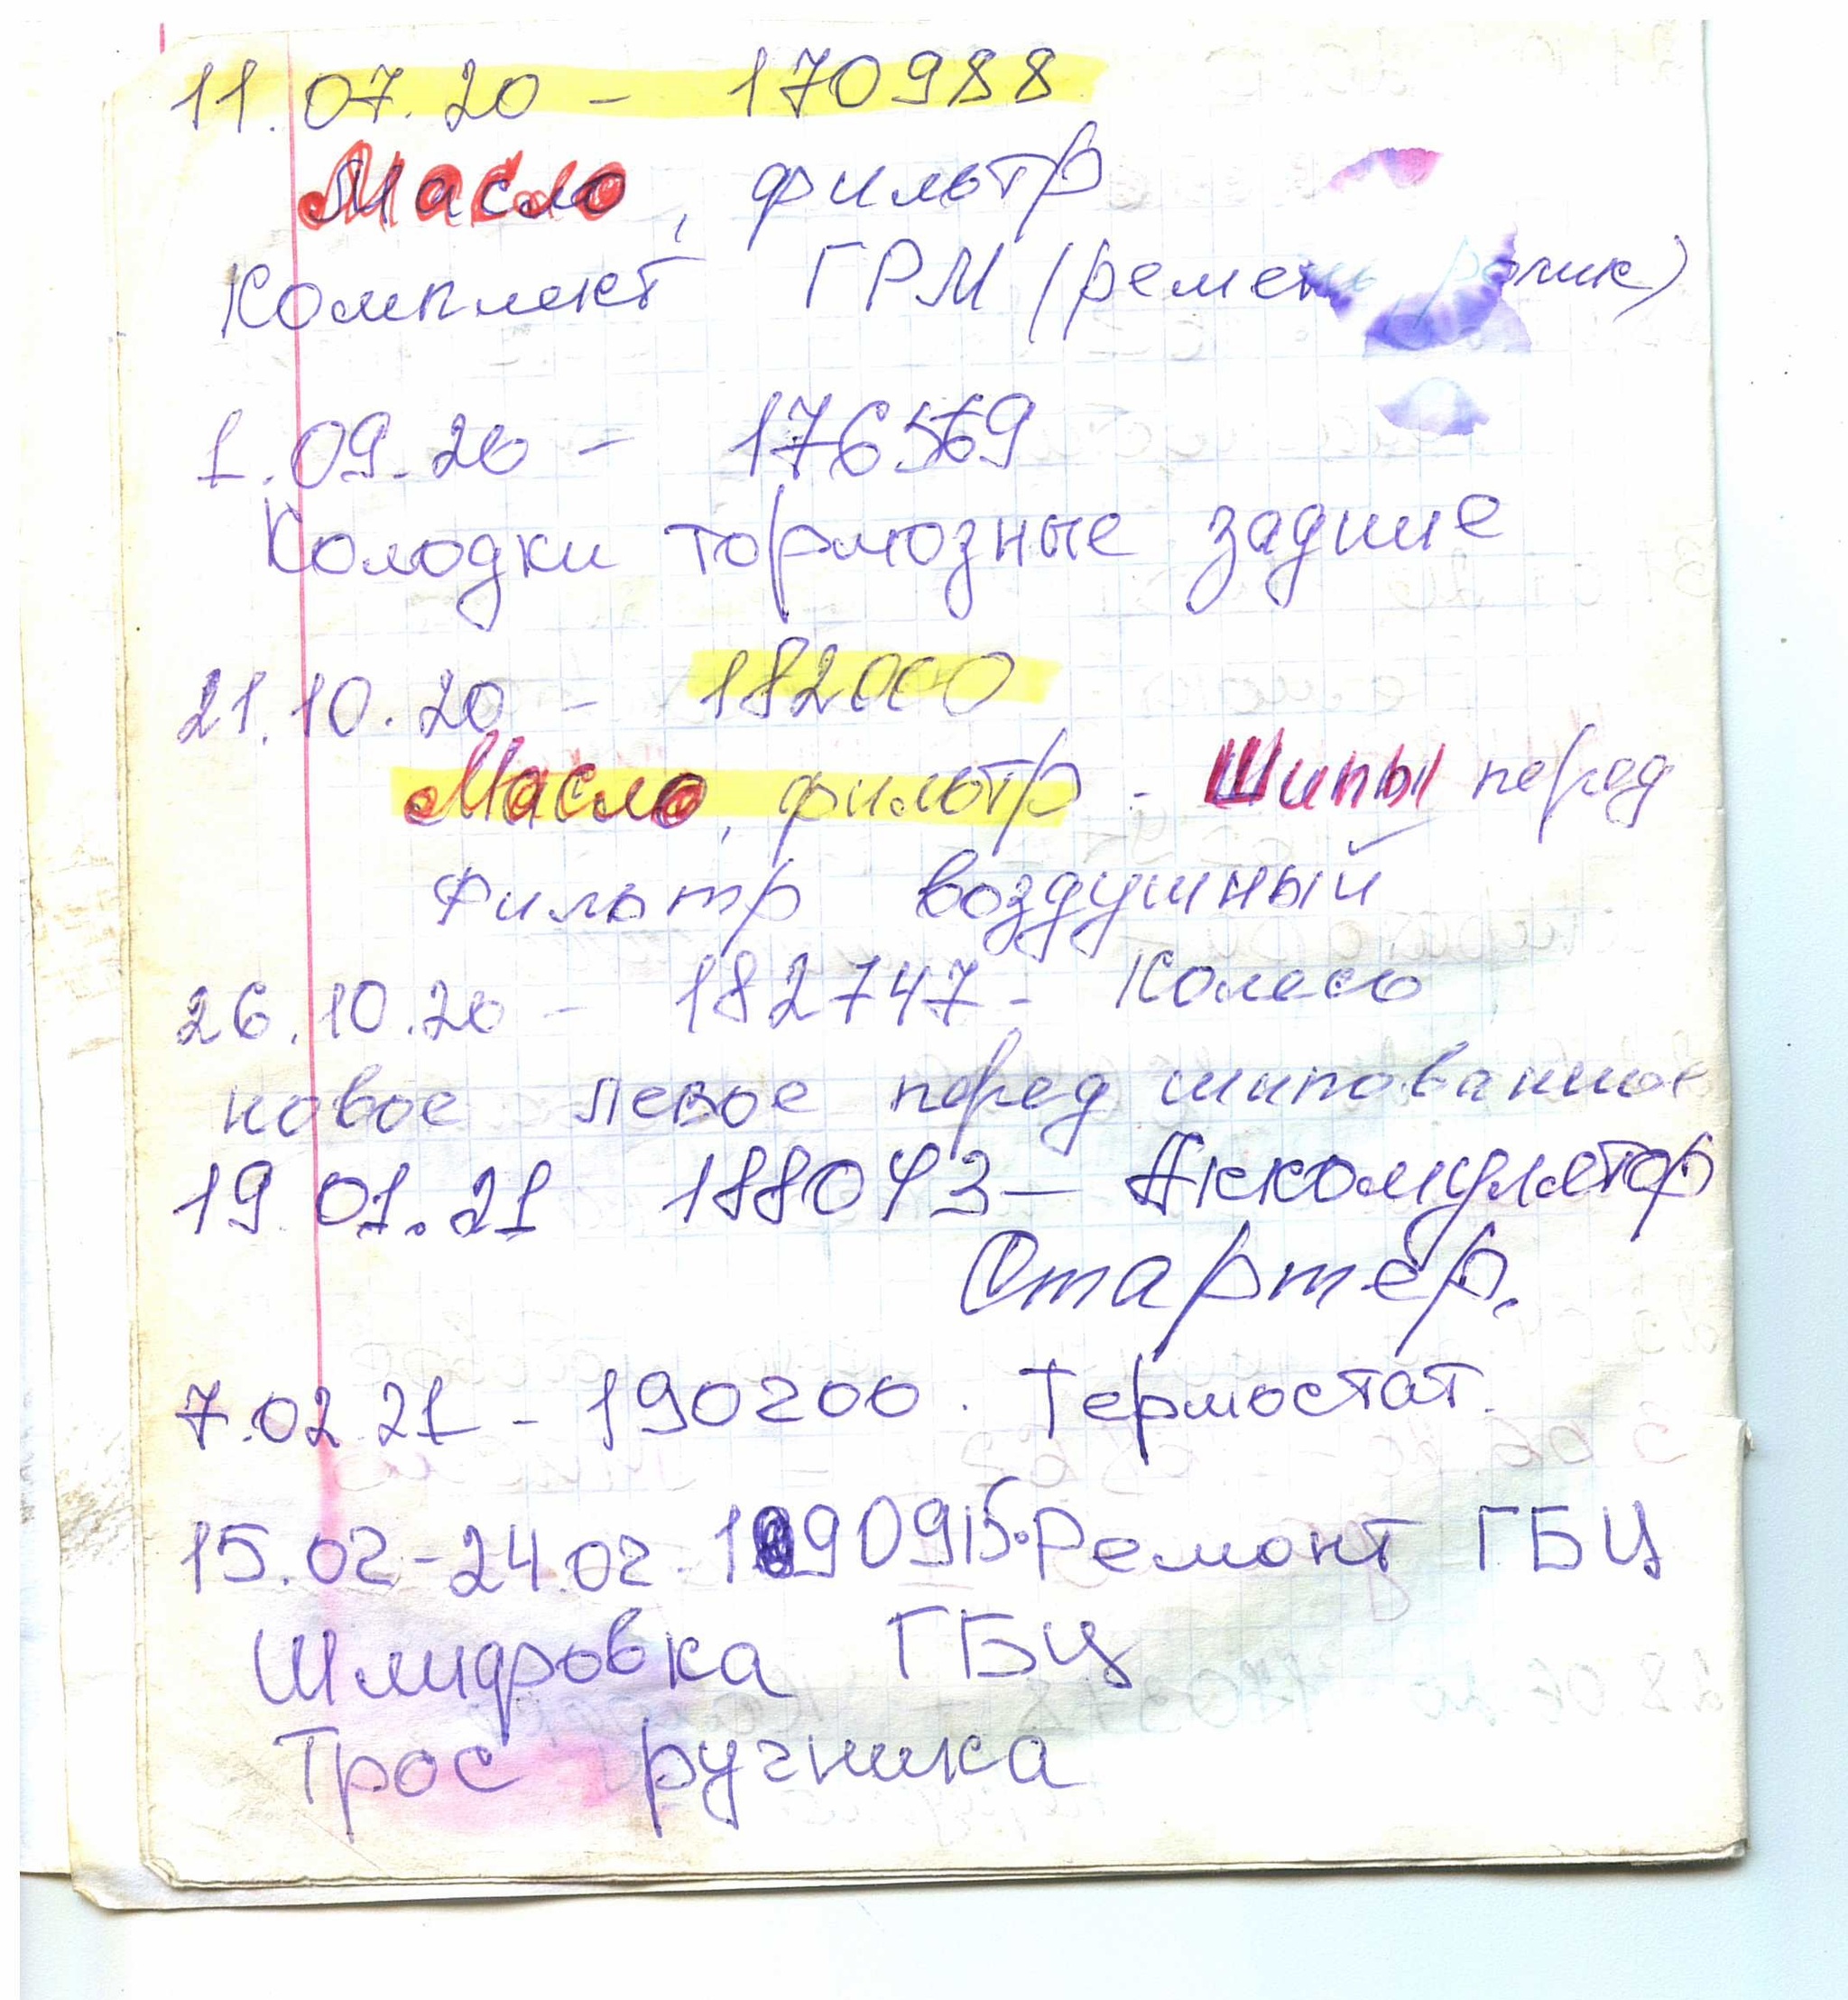 11.07.20 - 170988
Масло, фильтр
Комплект ГРМ (ремень, ролик)
1.09.20 - 176569
Колодки тормозные задние
21.10.20 - 182000
Масло, фильтр - Шипы перед
Фильтр воздушный
26.10.20 - 182747 - Колесо
новое левое перед шипованное
19.01.21 188043 - Аккомулятор
Стартер.
7.02.21 - 190200. Термостат.
15.02-24.02. 190915. Ремонт ГБЦ
Шлифовка ГБЦ
Трос ручника